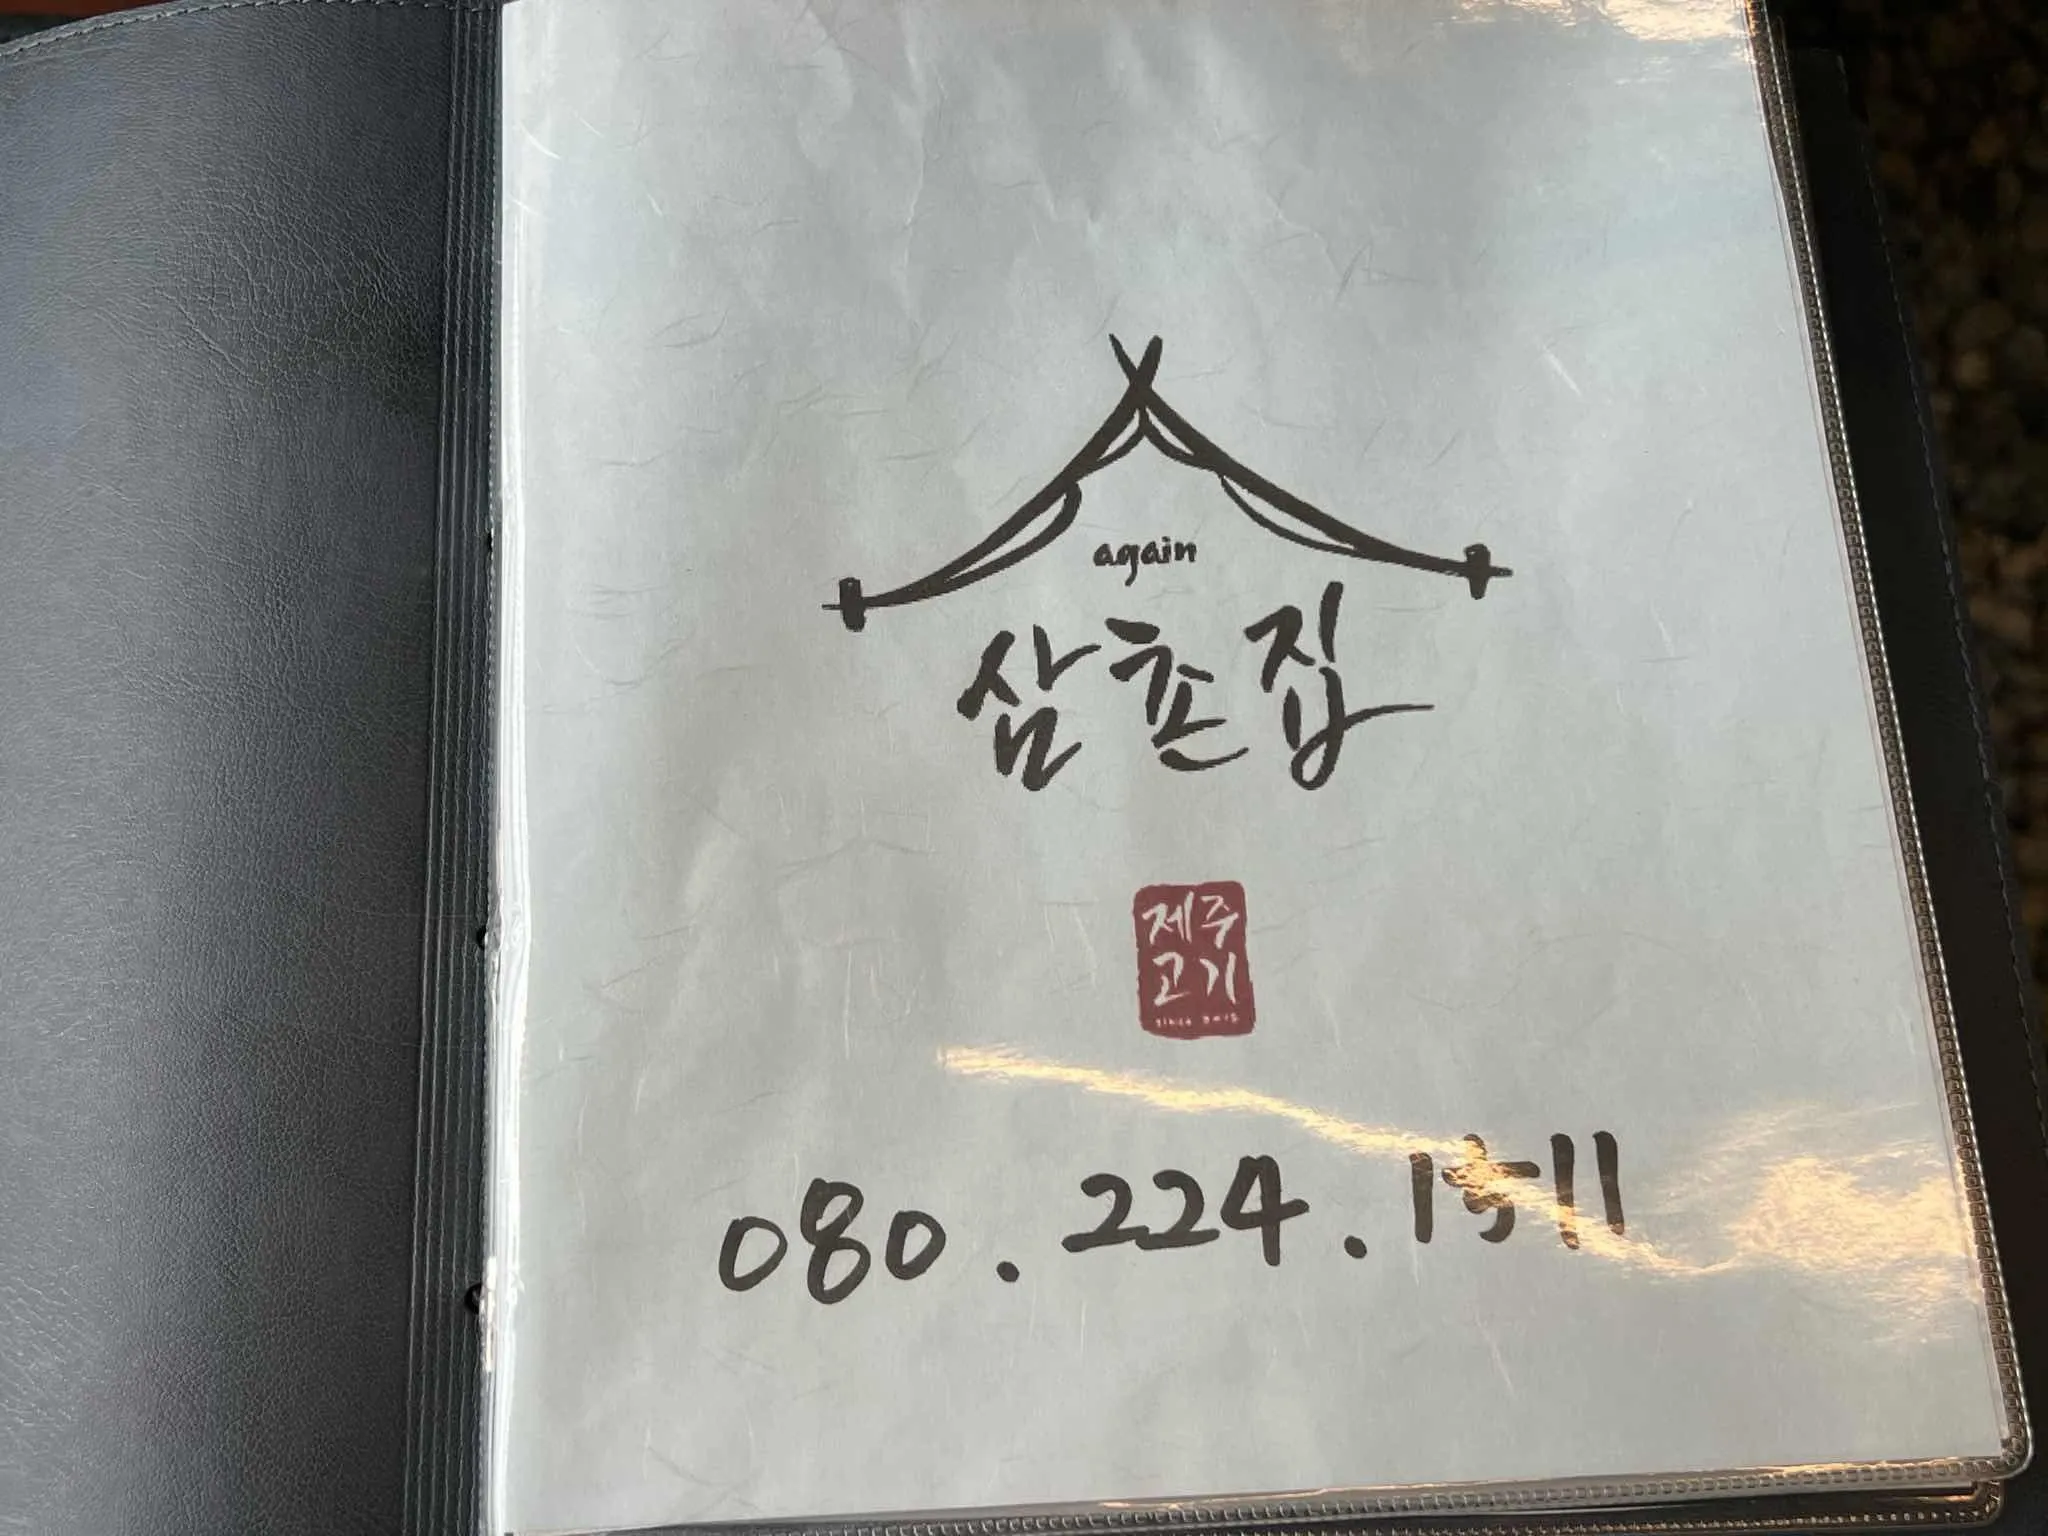 again
삼촌집
제주
고기
080.224.1511